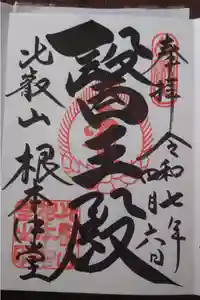 奉拝
令和七年
月六日
醫王殿
比叡山 根本中堂